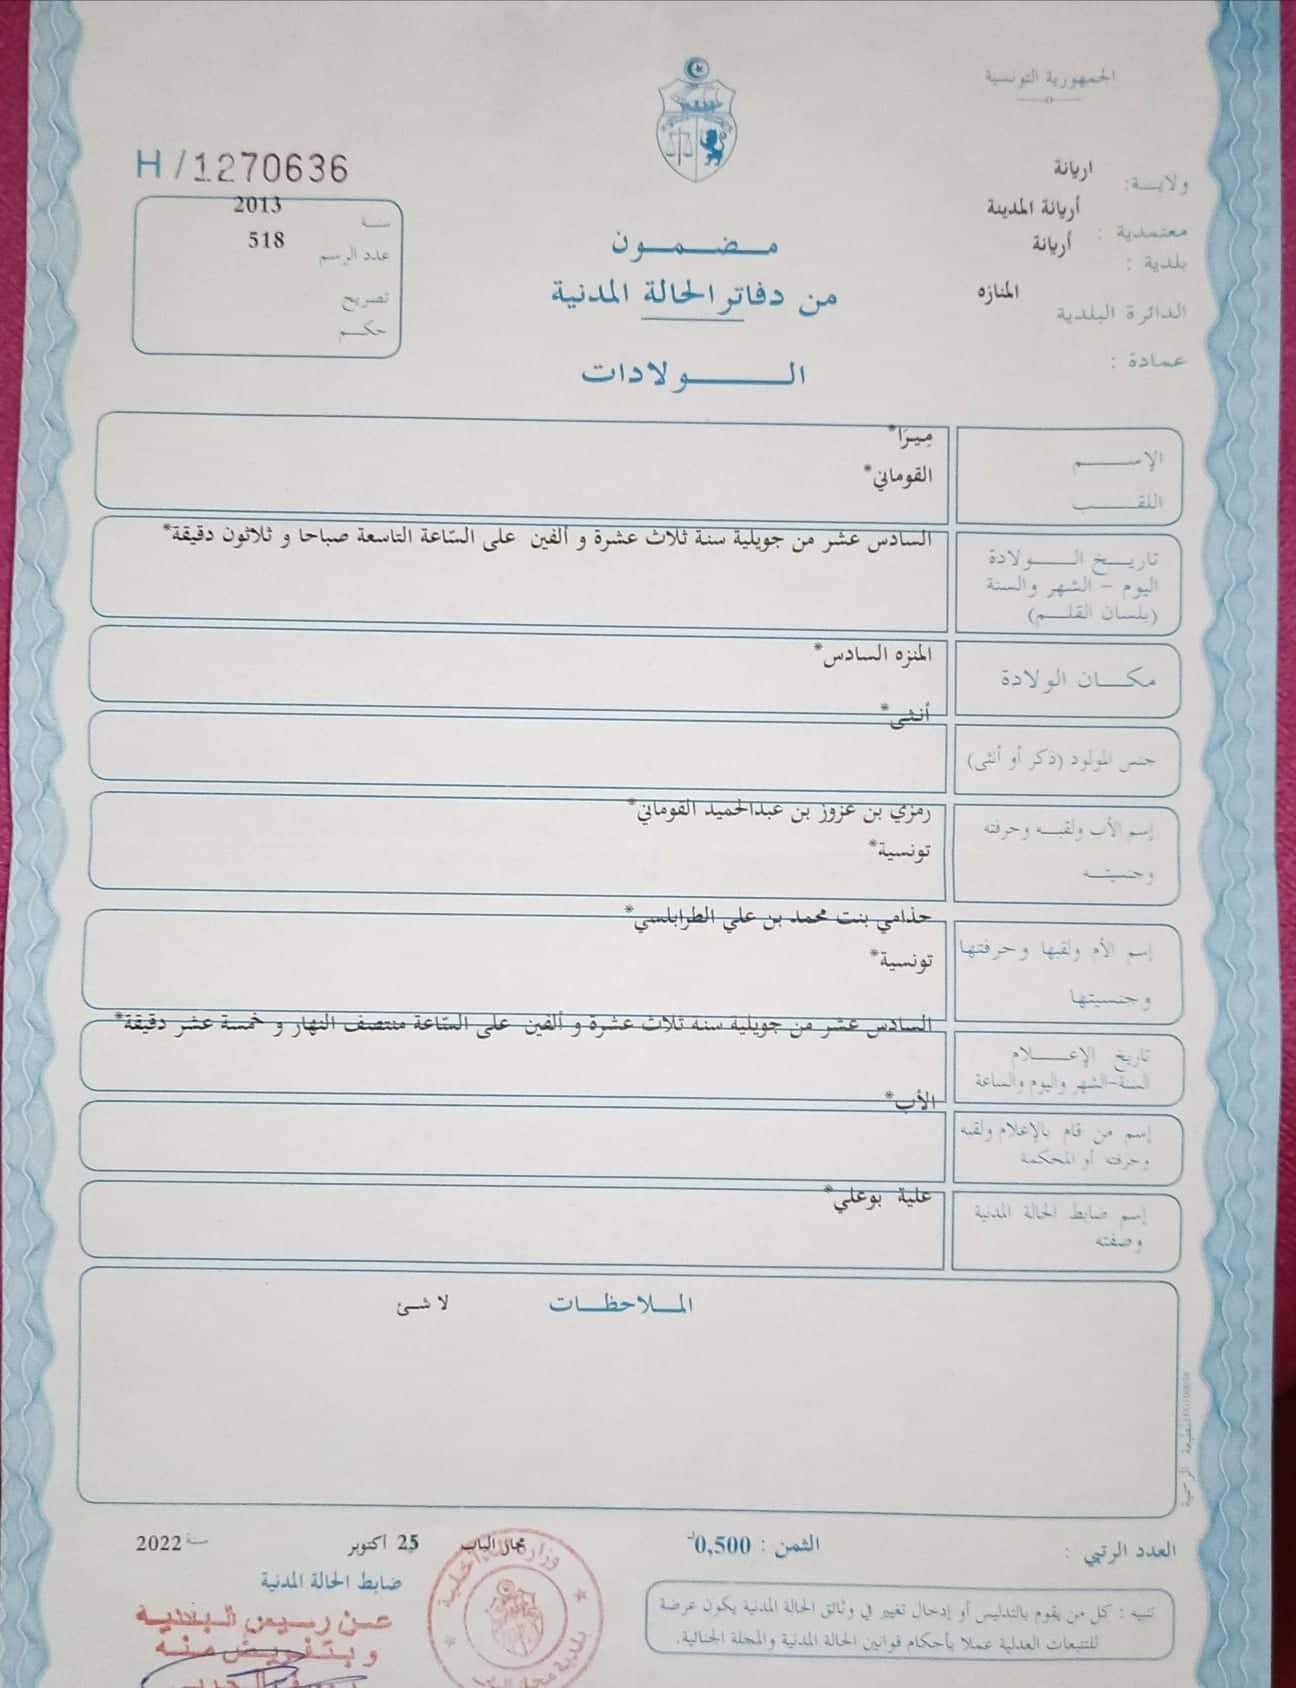 الجمهورية التونسية
ولايـــة: اريانة
معتمدية : أريانة المدينة
بلدية : أريانة
الدائرة البلدية المنازه
عمادة :
H/1270636
سنة 2013
عدد الرسم 518
تصريح
حكم
مضمون
من دفاتر الحالة المدنية
الولادات
الإسم ميرَا*
اللقب القوماني*
تاريخ الولادة
اليوم - الشهر والسنة
(بلسان القلم)
السادس عشر من جويلية سنة ثلاث عشرة و ألفين على السّاعة التاسعة صباحا و ثلاثون دقيقة*
مكان الولادة المنزه السادس*
جنس المولود (ذكر أو أنثى) أنثى*
إسم الأب ولقبه وحرفته رمزي بن عزوز بن عبدالحميد القوماني*
وجنسيته تونسية*
إسم الأم ولقبها وحرفتها حذامي بنت محمد بن علي الطرابلسي*
وجنسيتها تونسية*
تاريخ الإعلام
السنة-الشهر واليوم والساعة
السادس عشر من جويلية سنة ثلاث عشرة و ألفين على السّاعة منتصف النهار و خمسة عشر دقيقة*
إسم من قام بالإعلام ولقبه
وحرفته أو المحكمة
الأب*
إسم ضابط الحالة المدنية
وصفته
علية بوعلي*
الملاحظات
لا شئ
العدد الرتبي :
الثمن : 0,500د
مجاز الباب 25 اكتوبر سنة 2022
ضابط الحالة المدنية
عن رئيس البلدية
وبتفويض منه
تنبيه : كل من يقوم بالتدليس أو إدخال تغيير في وثائق الحالة المدنية يكون عرضة
للتتبعات العدلية عملا بأحكام قوانين الحالة المدنية والمجلة الجنائية.
وزارة الداخلية
بلدية مجاز الباب